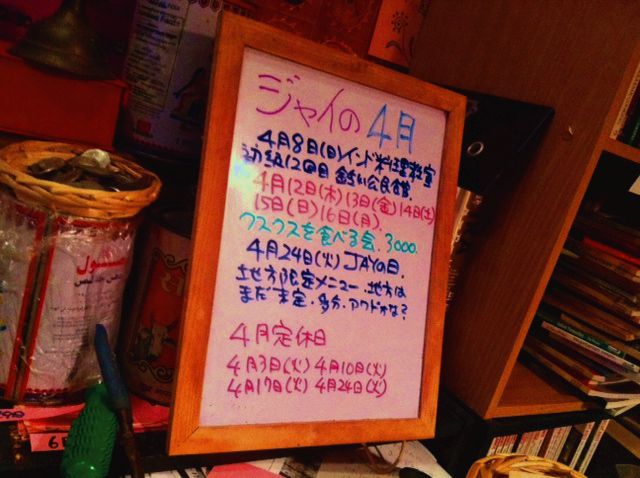 ジャイの4月
4月8日(日)インド料理教室
初級12回目
4月12日(木)13日(金)14日(土)
15日(日)16日(月)
クスクスを食べる会.3000.
4月24日(火)JAYの日.
地方限定メニュー・地方は
まだ未定・多分・アワドかな?
4月定休日
4月3日(火)4月10日(火)
4月17日(火)4月24日(火)